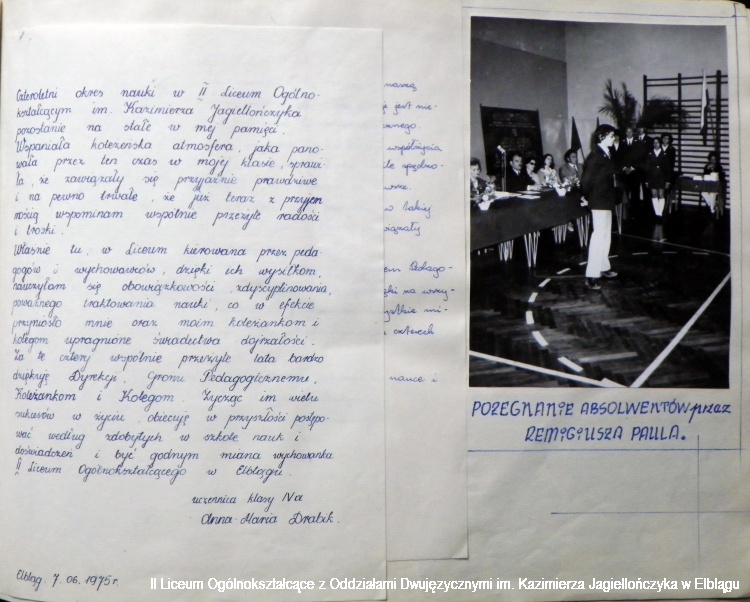 Czteroletni okres nauki w II Liceum Ogólno-
kształcącym im. Kazimierza Jagiellończyka
pozostanie na stałe w mej pamięci.
Wspaniała koleżeńska atmosfera, jaka pano-
wała przez ten czas w mojej klasie, sprawi-
ła, że zawiązały się przyjaźnie prawdziwe
i na pewno trwałe, że już teraz z przyjem
nością wspominam wspólnie przeżyte radości
i troski.
Właśnie tu, w Liceum kierowana przez peda-
gogów i wychowawców, dzięki ich wysiłkom,
nauczyłam się obowiązkowości, zdyscyplinowania,
poważnego traktowania nauki, co w efekcie
przyniosło mnie oraz moim koleżankom i
kolegom upragnione świadectwa dojrzałości.
Za te cztery wspólnie przeżyte lata bardzo
dziękuję Dyrekcji, Gronu Pedagogicznemu,
Koleżankom i Kolegom. Życząc im wielu
sukcesów w życiu, obiecuję w przyszłości postępo-
wać według zdobytych w szkole nauk i
doświadczeń i być godnym miana wychowanka
II Liceum Ogólnokształcącego w Elblągu.
uczennica klasy IVa
Anna-Maria Drabik.
Elbląg. 7.06.1975r.
naszą
jest nie-
współżycia
spędzo-
takiej
Pedago-
czterech
nauce i
POŻEGNANIE ABSOLWENTÓW przez
REMIGIUSZA PAULA.
II Liceum Ogólnokształcące z Oddziałami Dwujęzycznymi im. Kazimierza Jagiellończyka w Elblągu